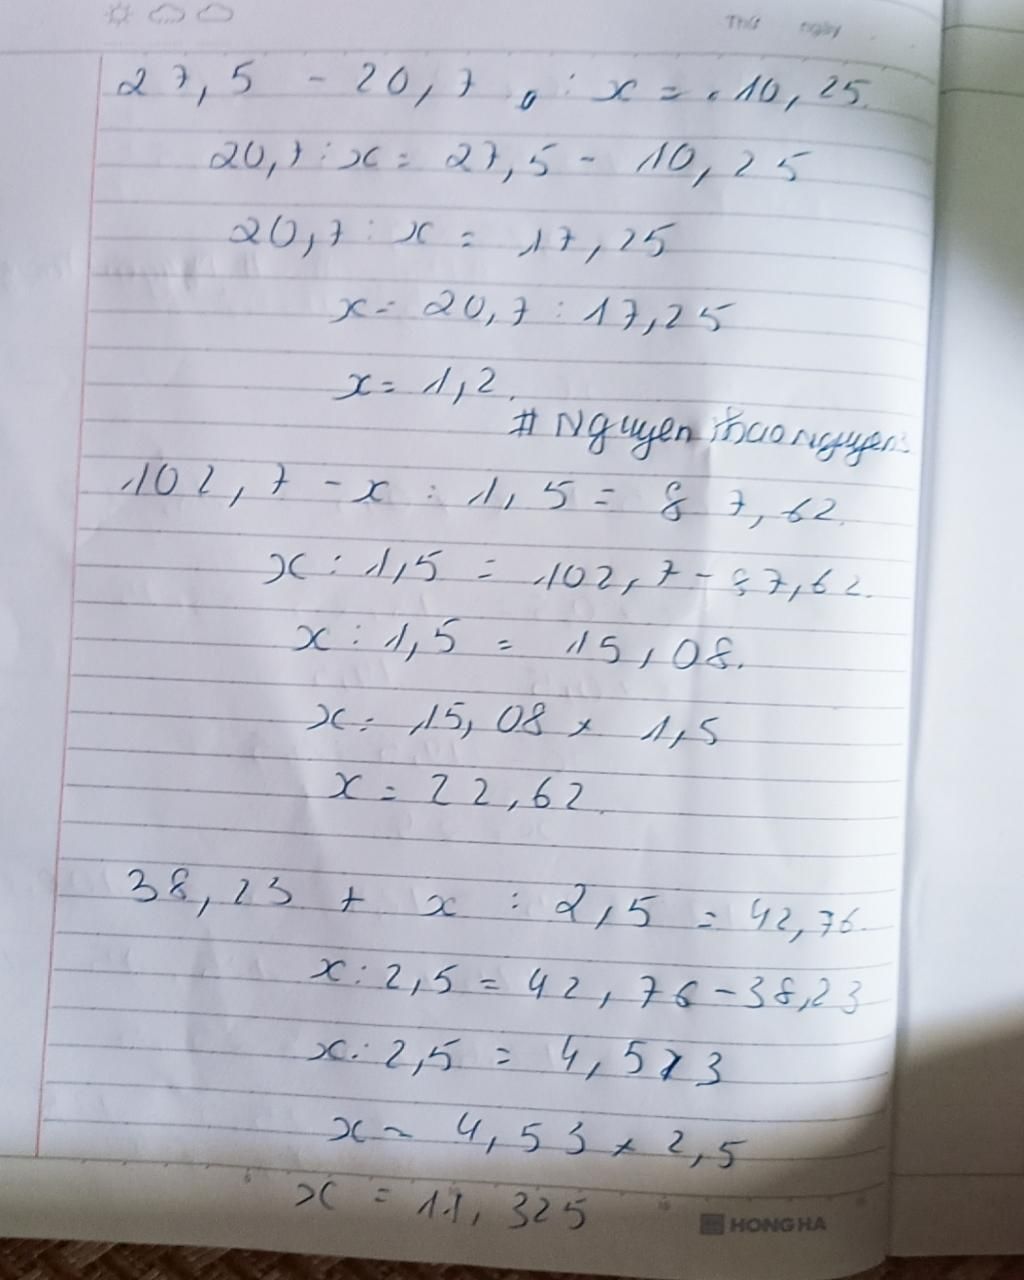 Thứ ngày
27,5 - 20,7 : x = 10,25
20,7 : x = 27,5 - 10,25
20,7 : x = 17,25
x = 20,7 : 17,25
x = 1,2.
# Nguyen thao nguyen
102,7 - x : 1,5 = 87,62.
x : 1,5 = 102,7 - 87,62.
x : 1,5 = 15,08.
x = 15,08 x 1,5
x = 22,62.
38,23 + x : 2,5 = 42,76
x : 2,5 = 42,76 - 38,23
x : 2,5 = 4,53
x = 4,53 x 2,5
x = 11,325
HONG HA